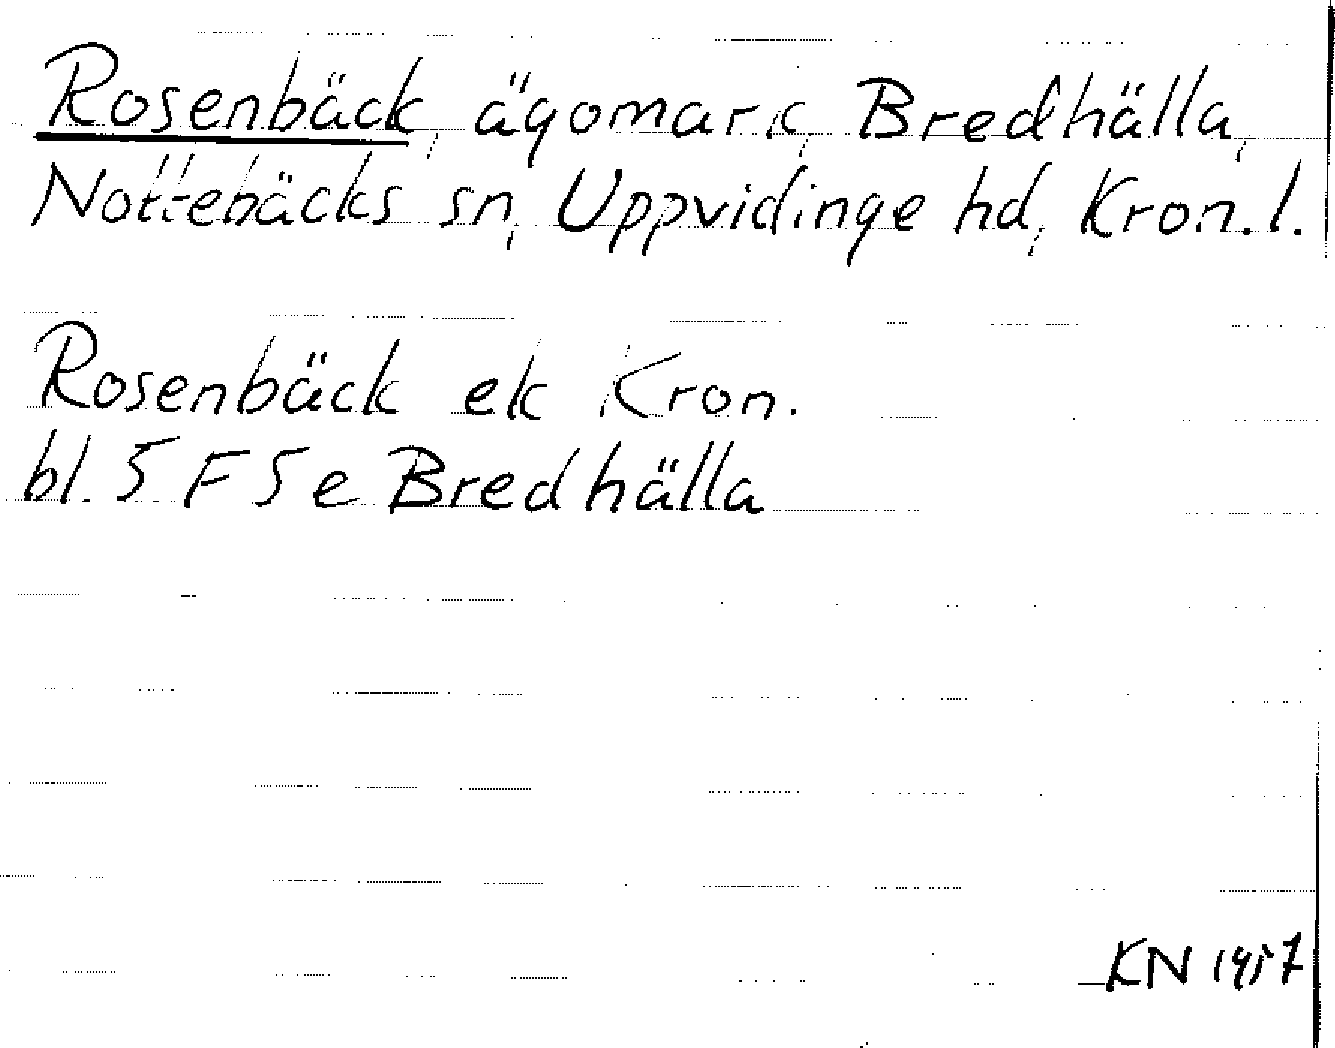 Rosenbäck, ägomark, Bredhälla,
Nottebäcks sn, Uppvidinge hd, Kron.l.
Rosenbäck ek Kron.
bl. 5 F 5 e Bredhälla
KN 1957